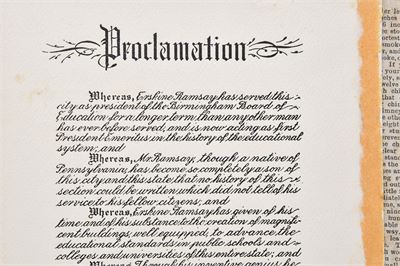 Proclamation
Whereas, Erskine Ramsay has served this
city as president of the Birmingham Board of
Education for a longer term than any other man
has ever before served, and is now acting as first
President Emeritus in the history of the educational
system; and
Whereas, Mr. Ramsay, though a native of
Pennsylvania, has become so completely a son of
this city and this state that no history of this
section could be written which did not tell of his
service to his fellow citizens; and
Whereas, Erskine Ramsay has given of his
time and of his substance to the creation of magnifi-
cent buildings, well equipped, to advance the
educational standards in public schools and
colleges and universities of this entire state; and
Whereas, Though his inventive genius he